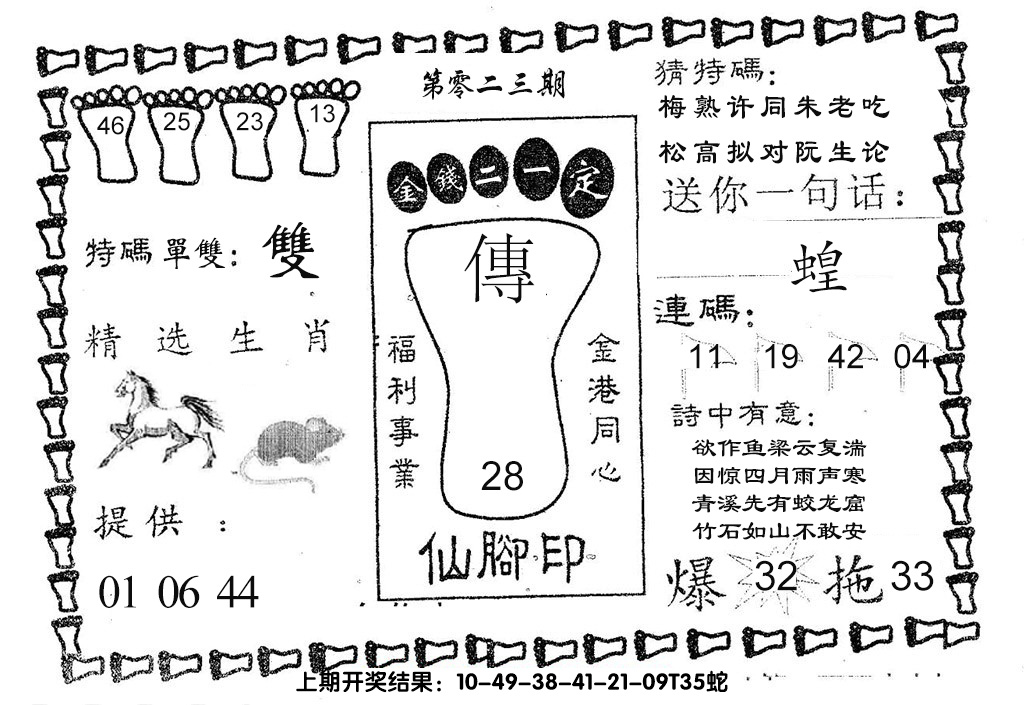 第零二三期
46 25 23 13
特碼單雙：雙
精选生肖
提供：
01 06 44
金錢二一定
傳
福利事業
金港同心
28
仙腳印
猜特碼：
梅熟许同朱老吃
松高拟对阮生论
送你一句话：
蝗
連碼：
11 19 42 04
詩中有意：
欲作鱼梁云复湍
因惊四月雨声寒
青溪先有蛟龙窟
竹石如山不敢安
爆 32 拖 33
上期开奖结果：10-49-38-41-21-09T35蛇